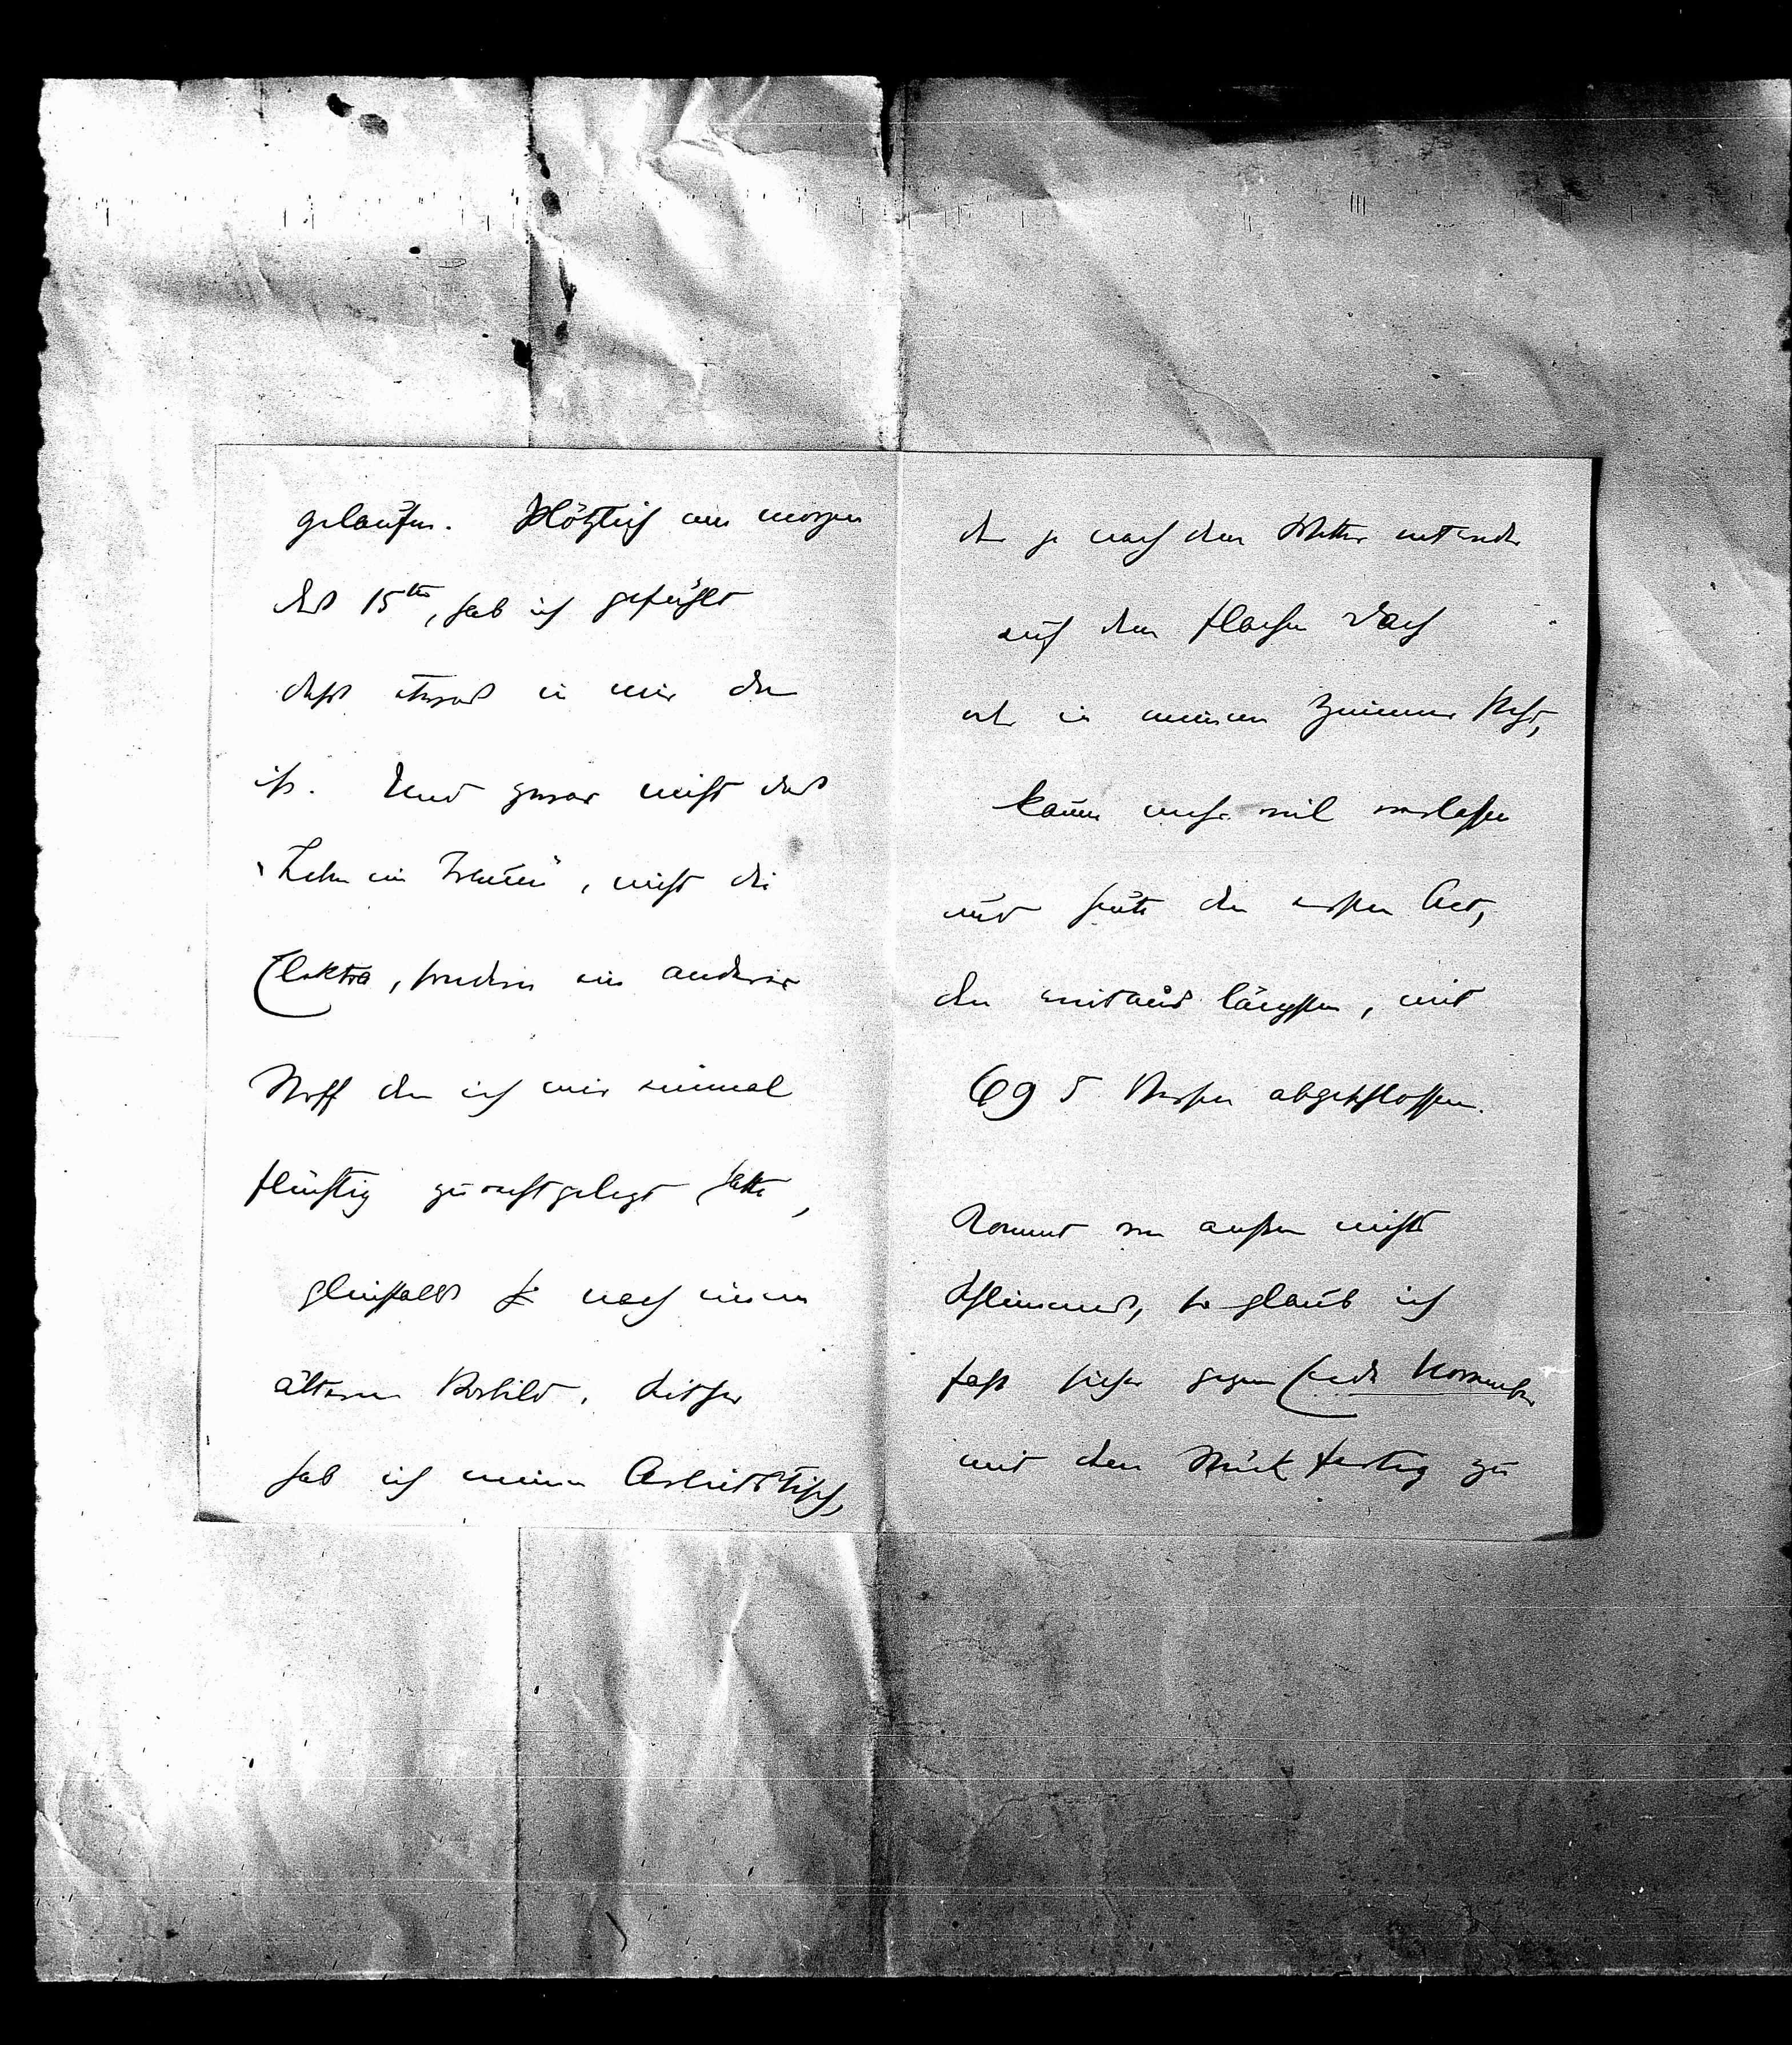 gelaufen. Plötzlich am morgen
des 15ten, hab ich gefühlt
dass etwas in mir da
ist. Und zwar nicht das
"Leben ein Traum", nicht die
Elektra, sondern ein anderer
Stoff den ich mir einmal
flüchtig zurechtgelegt hatte,
gleichfalls nach einem
älteren Vorbild. Seither
hab ich meinen Arbeitstisch,
der je nach dem Wetter entweder
auf dem flachen Dach
oder in meinem Zimmer steht,
kaum mehr viel verlassen
und heute den ersten Act,
den weitaus längsten, mit
695 Versen abgeschlossen.
Kommt von aussen nichts
Schlimmes, so glaub ich
fast sicher gegen Ende November
mit dem Stück fertig zu